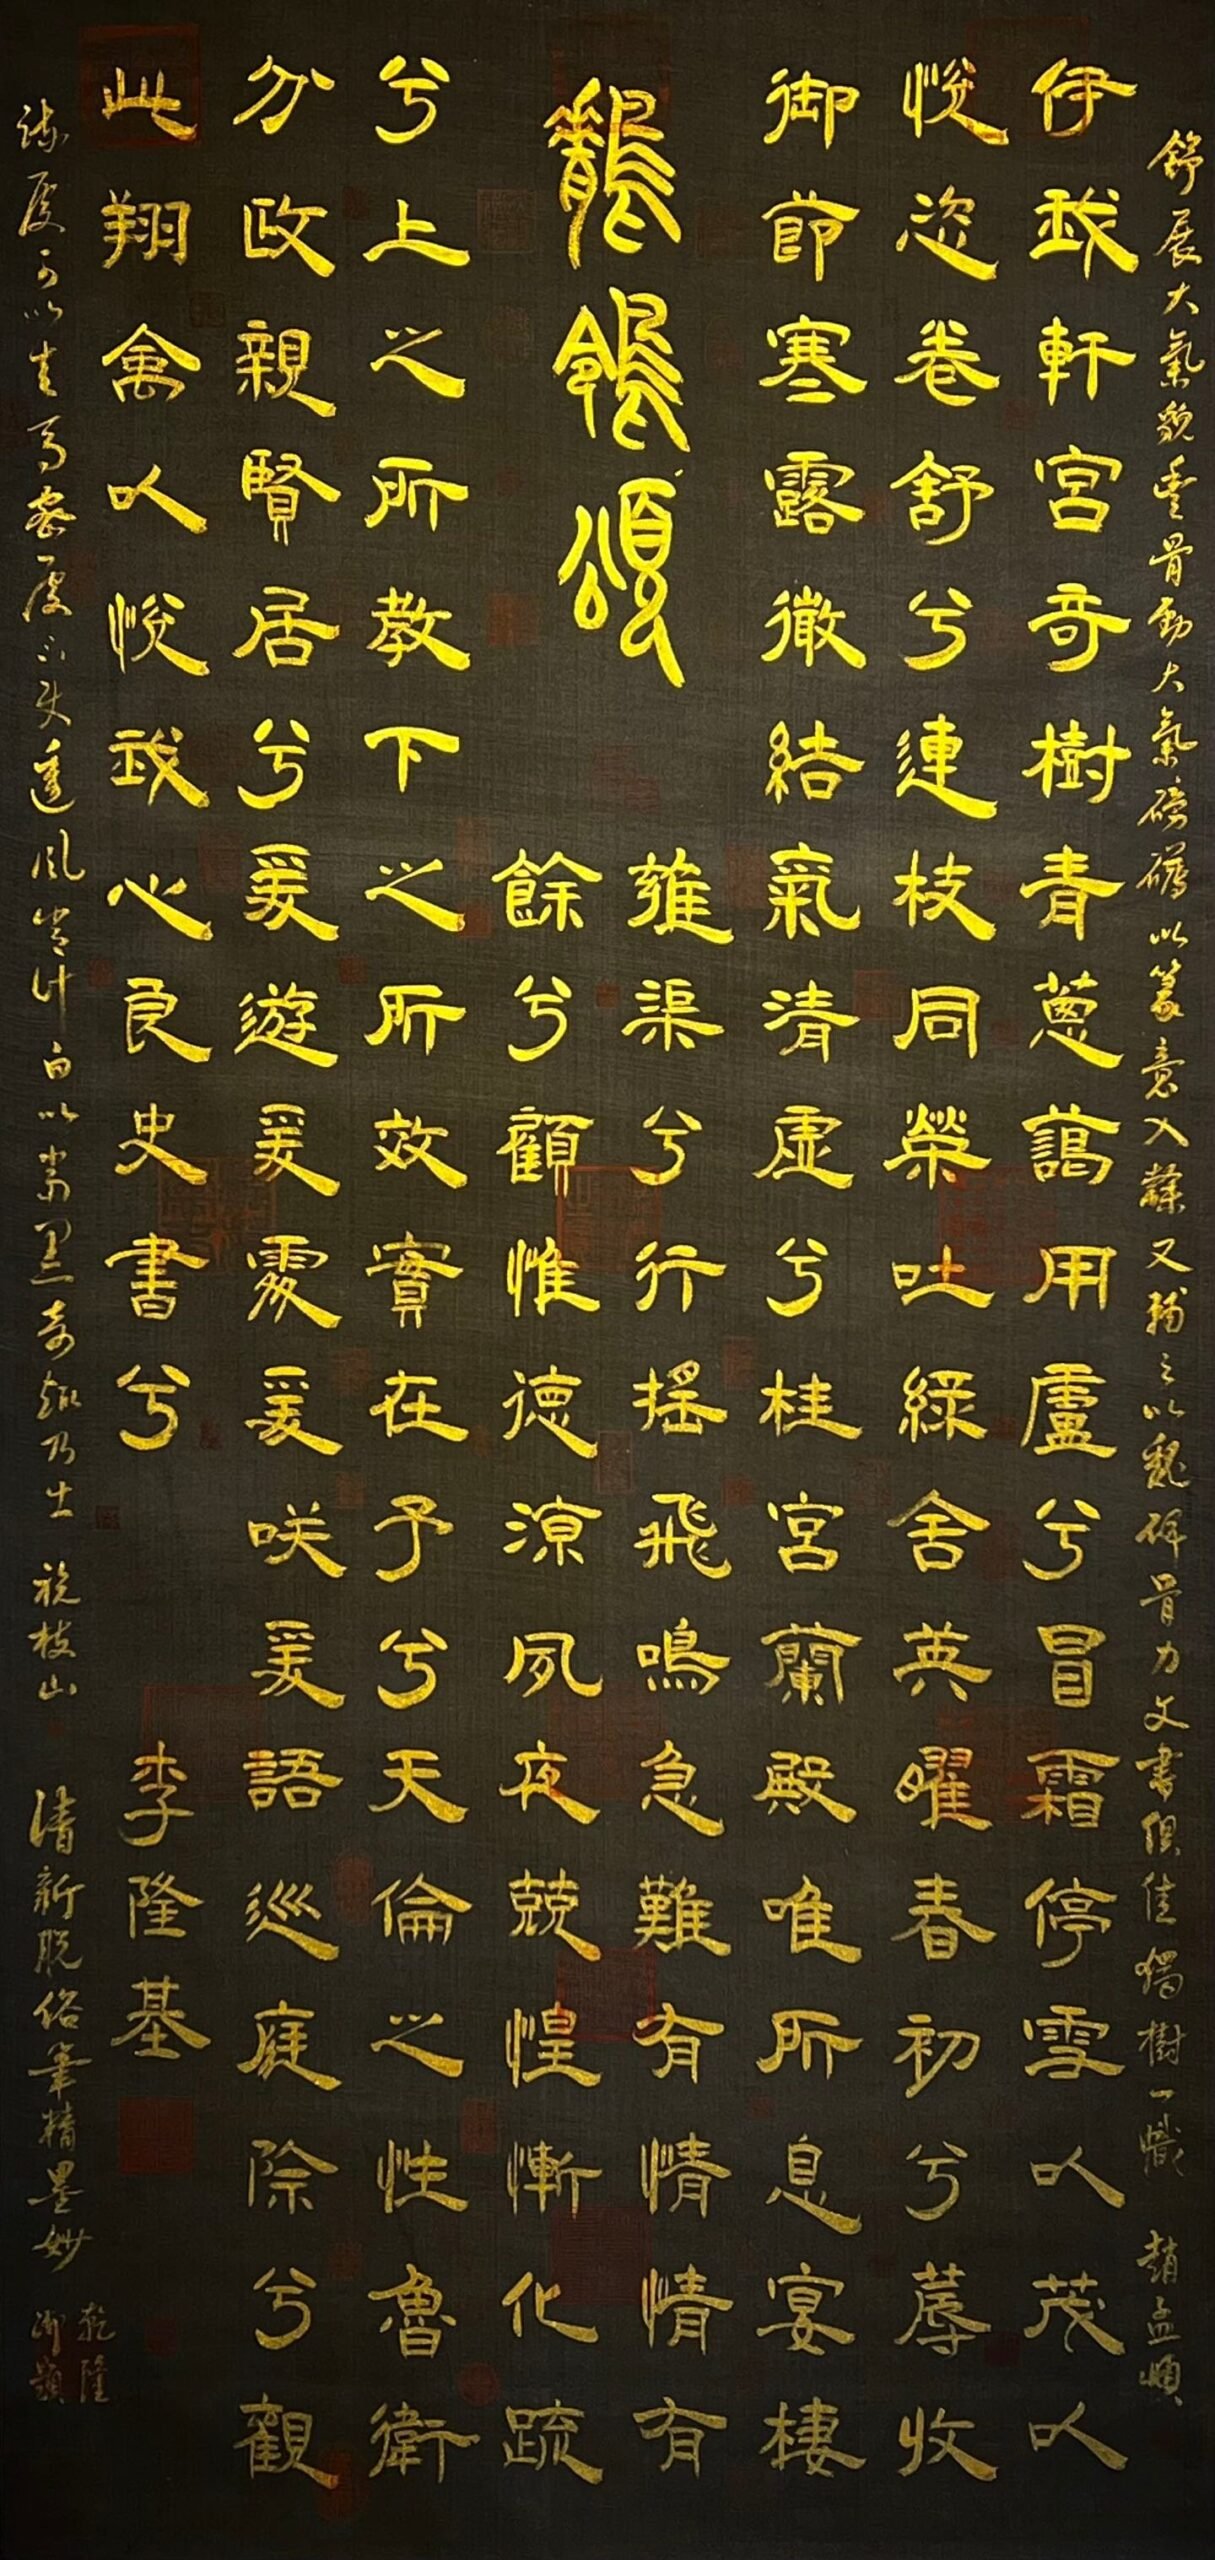 舒展大氣貌豐骨勁大氣磅礴以篆意入隸又輔之以魏碑骨力文書俱佳獨樹一幟 趙孟頫
伊我軒宮奇樹青蔥藹用廬兮冒霜停雪以茂以
悅恣卷舒兮連枝同榮吐綠含英曜春初兮蓐收
御節寒露徹結氣清虛兮桂宮蘭殿唯所息宴棲
鶺鴒頌
雍渠兮行搖飛鳴急難有情情有
餘兮顧惟德涼夙夜兢惶慚化疏
兮上之所教下之所效實在予兮天倫之性魯衛
分政親賢居兮爰遊爰處爰咲爰語巡庭除兮觀
此翔禽以悅我心良史書兮 李隆基
疏處可以走馬密處不使透風常計白以當黑奇趣乃出 祝枝山
清新脫俗筆精墨妙 乾隆
御題